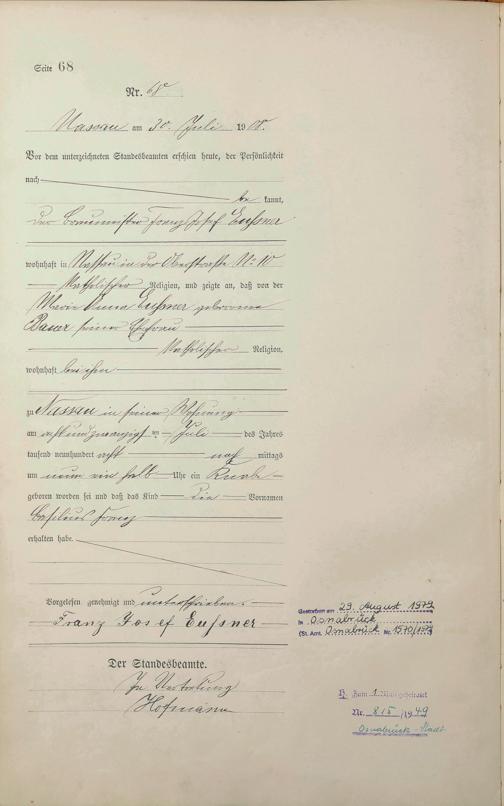 Seite 68
Nr. 68
Nassau am 30. Juli 1908.
Vor dem unterzeichneten Standesbeamten erschien heute, der Persönlichkeit
nach
be kannt,
der Baumeister Franz Josef Eußner
wohnhaft in Nassau in der Oberstraße No 10
Katholischer Religion, und zeigte an, daß von der
Maria Anna Eußner geborenen
Bauer seiner Ehefrau
Katholischer Religion,
wohnhaft bei ihm
zu Nassau in seiner Wohnung
am achtundzwanzigsten Juli des Jahres
tausend neunhundert acht nach mittags
um neun ein halb Uhr ein Knabe
geboren worden sei und daß das Kind die Vornamen
Franz
erhalten habe.
Vorgelesen, genehmigt und unterschrieben
Franz Josef Eußner
Der Standesbeamte.
In Vertretung
Hofmann
Gestorben am 29. August 1979
in Osnabrück
(St. Amt. Osnabrück Nr. 1570/1979)
H. Zum 1. Mal geheiratet
Nr. 815/1949
Osnabrück-Stadt